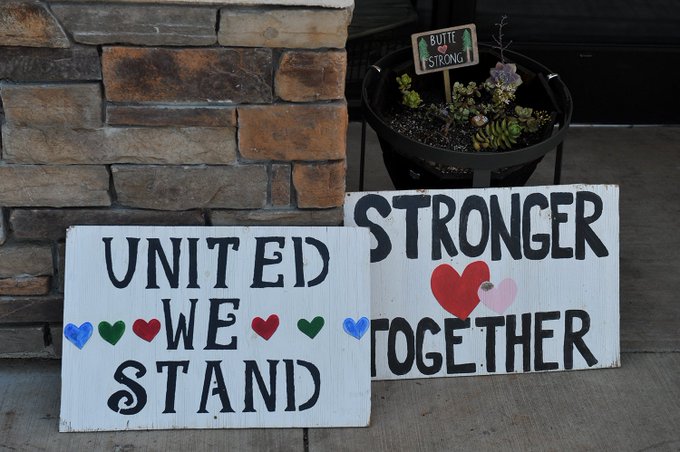 BUTTE
STRONG
UNITED
WE
STAND
STRONGER
TOGETHER